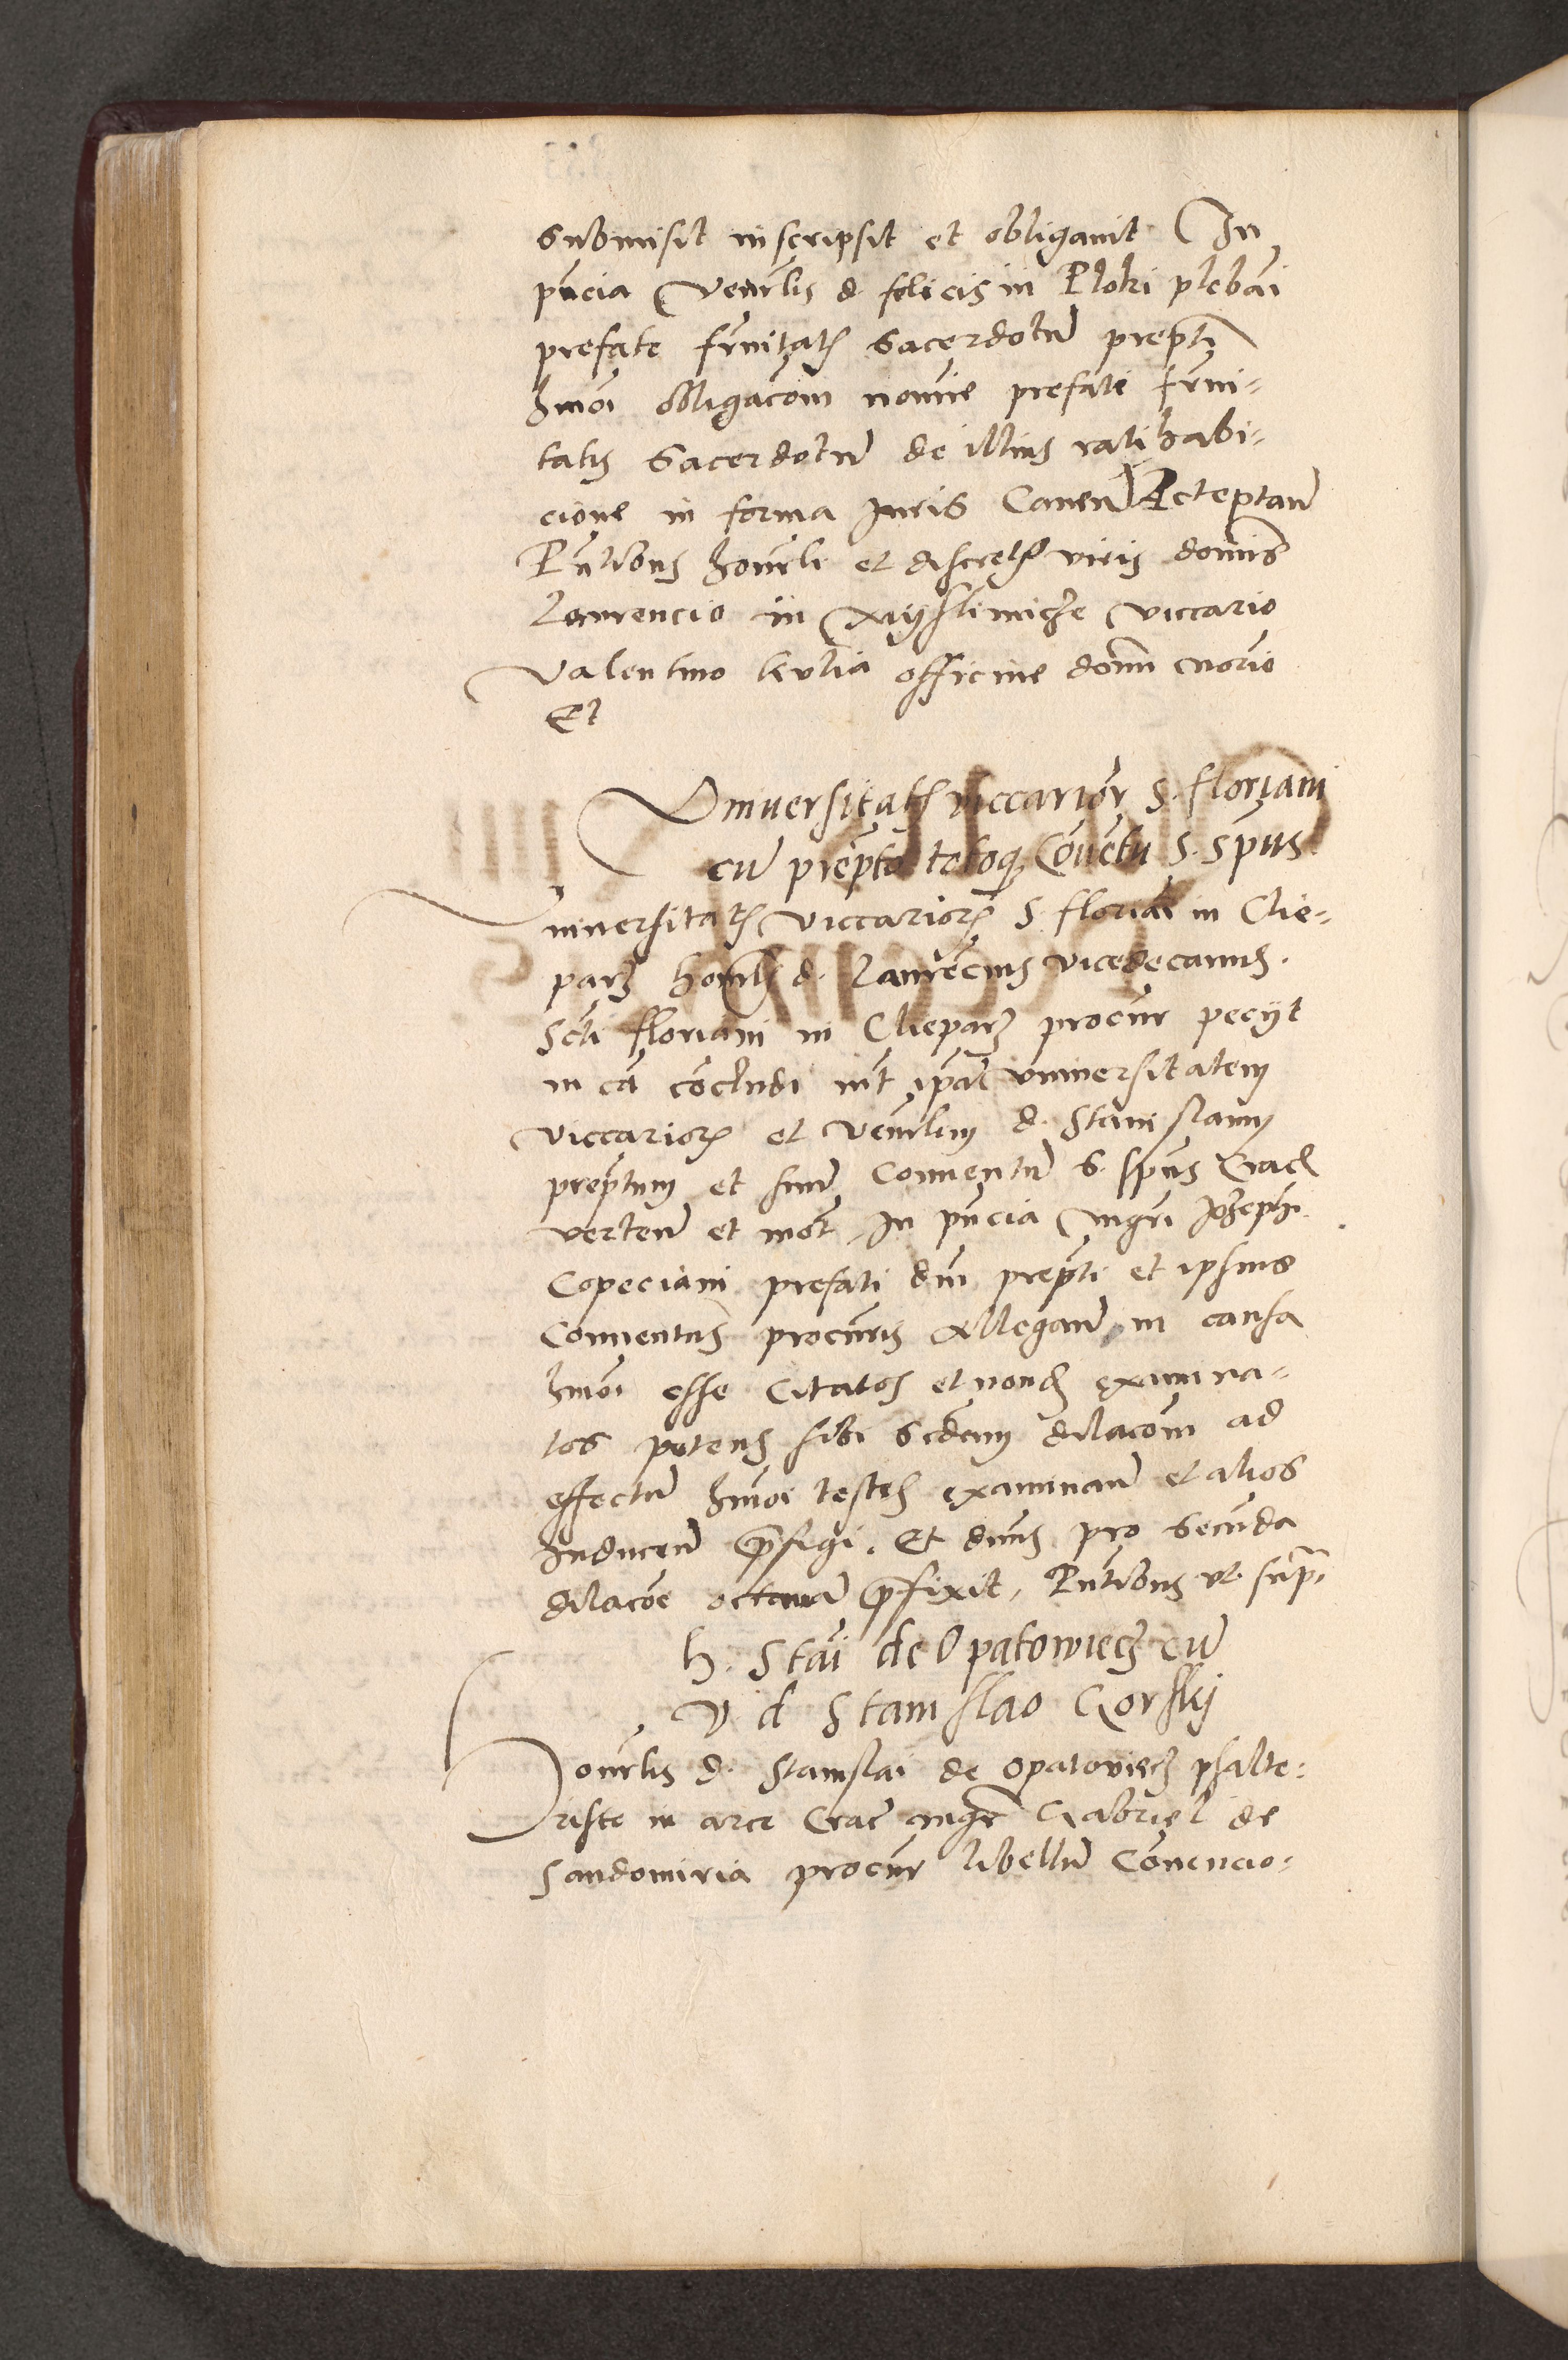 submisit inscripsit et obligavit In
pn̄cia Venerlis d. felicis in Ploki pleba͞ni
prefate fr͞nitatis Sacerdotu͞ prep͞ti
hmo͞i obligaco͞m no͞mie prefate fr͞ni-
tatis Sacerdotu͞ de illius ratihabi-
cione in forma Iuris Caven͞ Acceptan͞
Pn̄tibus hon͞rli et discretis viris dom͞is
Laurencio in Myslimicze viccario
Valentino officine dom͞ notario
Et
Universitatis viccarior͞ S. floriani
cu͞ prep͞to totoq͞ Co͞ve͞tu S. Sp͞us
Universitatis viccarior͞ S. floria͞i in Cle-
parz hon͞rlis d. Laure͞cius vicedecanus
Sc͞ti floriani in Cleparz procur pecijt
in ca͞ co͞cludi int͞ ip͞am universitatem
viccarior͞ et Ven͞rlem d. Stanislaum
prep͞tum et suu͞ Conventu͞ S. Sp͞us Crac͞
verten͞ et mot͞. In pn̄cia mgri Josephi
Copeciani prefati d͞ni prep͞ti et ipsius
Conventus procuris allegan͞ in causa
hmo͞i esse Citatos et nond͞ examina-
tos petens sibi s͞cdam dilaco͞m ad
effectu͞ hmo͞i testes examinan͞ et alios
Inducen͞ p͞figi. Et d͞nus pro Secu͞da
dilaco͞e octava͞ p͞fixit. Pn̄tibus ut sup͞.
H. Sta͞i de Opatowiecz cu͞
V. d Stanislao Gorskij
Hon͞rlis d. Stanislai de Opatowiecz psalte-
riste in arce Crac͞ mgr͞ Gabriel de
Sandomiria procur libellu͞ Co͞vencio-